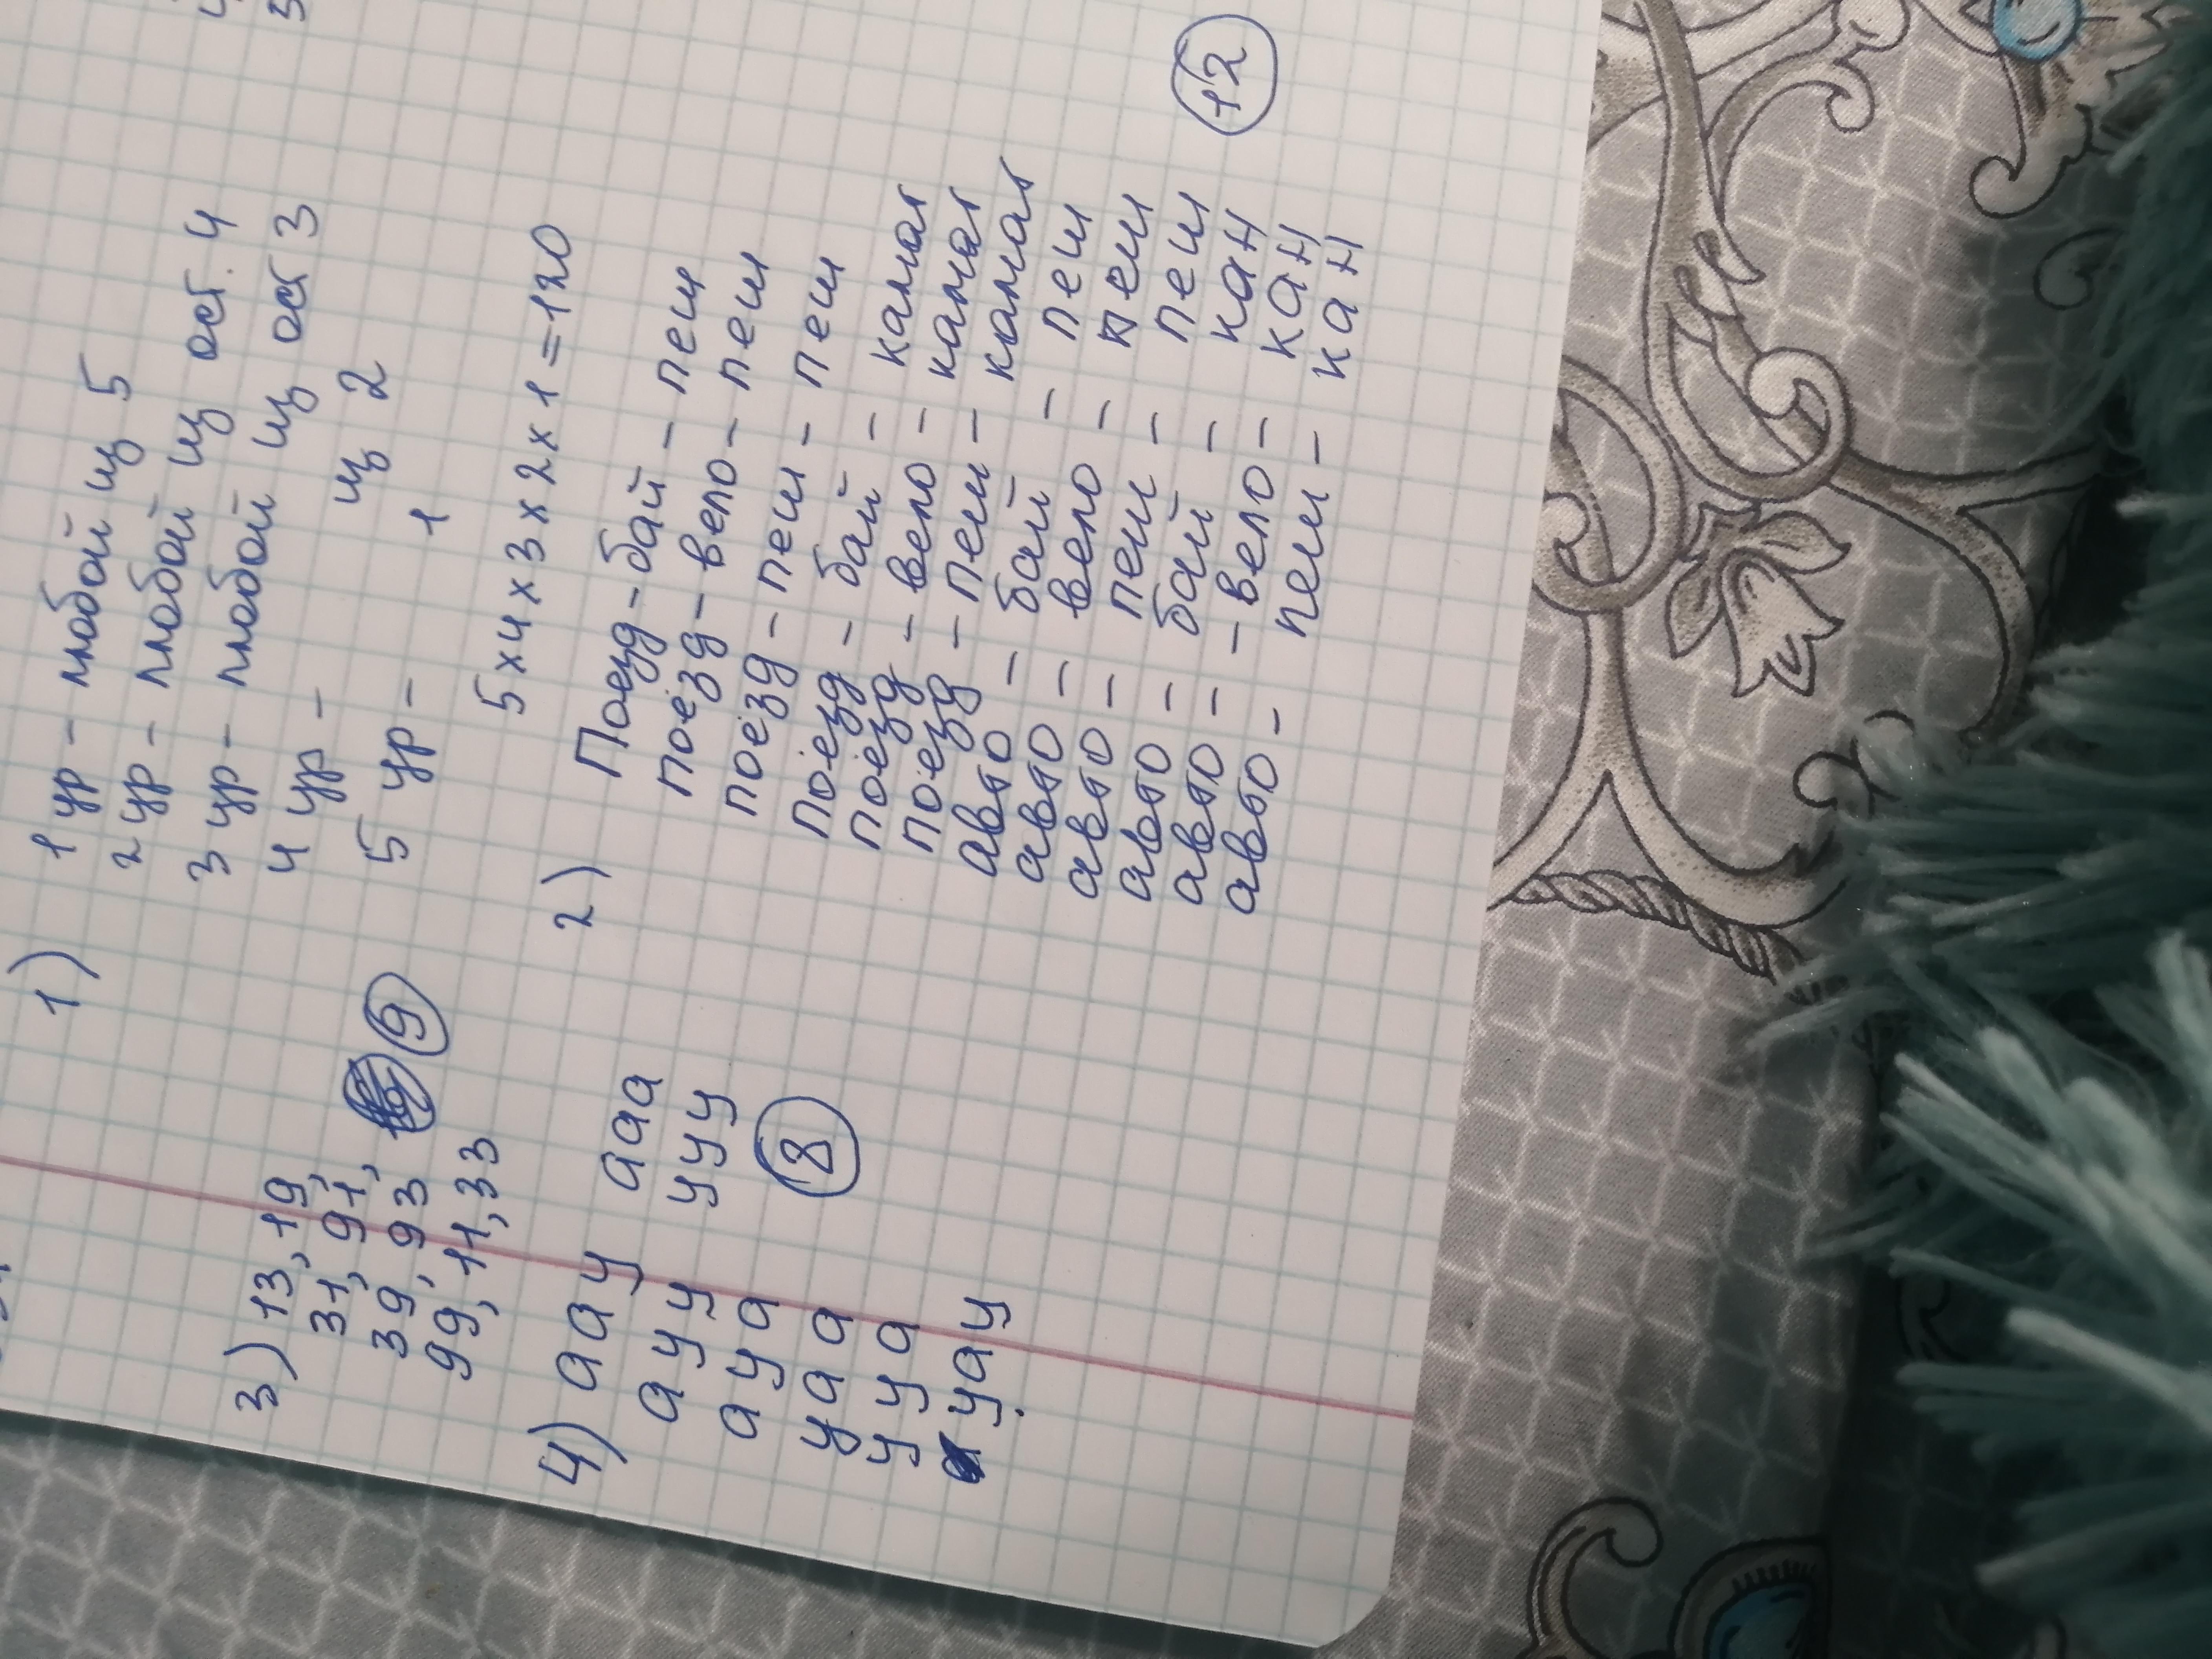 1) 1 ур - любой из 5
2 ур - любой из ост. 4
3 ур - любой из ост 3
4 ур - из 2
5 ур - 1
5 х 4 х 3 х 2 х 1 = 120
2) Поезд - бай - пеш
поезд - вело - пеш
поезд - пеш - пеш
поезд - бай - канат
поезд - вело - канат
поезд - пеш - канат
авто - бай - пеш
авто - вело - пеш
авто - пеш - пеш
авто - бай - кан
авто - вело - кан
авто - пеш - кан
12
3) 13, 19,
31, 91,
39, 93
99, 11, 33
9
4) аау ааа
ауу ууу
ауа
уаа
ууа
уау
8